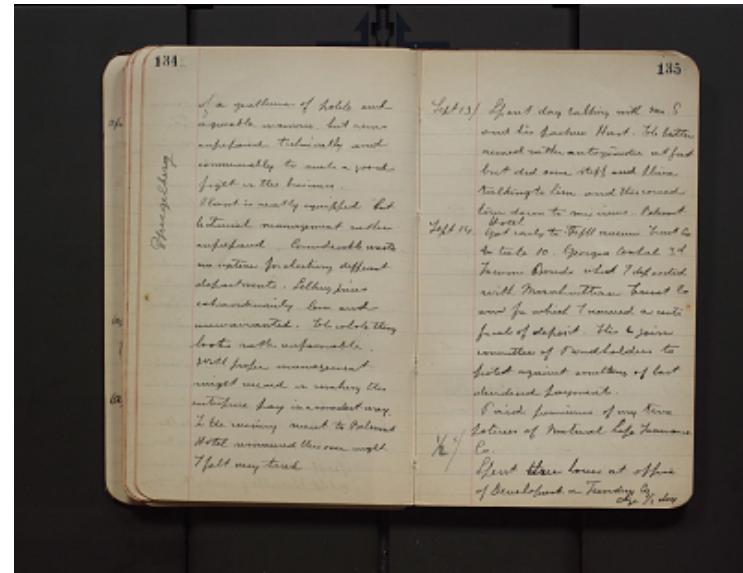 134
Spiegelberg
of a gentleman of noble and
agreeable manner but seems
unprepared technically and
commercially to make a good
fight in the business.
Plant is neatly equipped but
technical management rather
unprepared. Considerable waste
no system for checking different
departments. Selling prices
extraordinarily low and
unwarranted. The whole thing
looks rather unfavorable.
With proper management
might succeed in making this
enterprise pay in a modest way.
In the evening went to Belmont
Hotel remained there over night
I felt very tired
135
Sept 13/ Spent day talking with Mr. S
and his partner Hunt. The latter
seemed rather antagonistic at first
but did some stiff and plain
talking to him and then toned
him down to my views. Belmont
Hotel
Sept 14. Got early to Fifth Avenue Trust Co
to take 10. Georgia Central 3rd
Income Bonds which I deposited
with Manhattan Trust Co
and for which I received a certi
ficate of deposit. This to join
committee of Bondholders to
protest against smallness of last
dividend payment.
Paid premiums of my two
policies of Mutual Life Insurance
Co.
1/2
Spent three hours at office
of Development &
Co 1/2 day